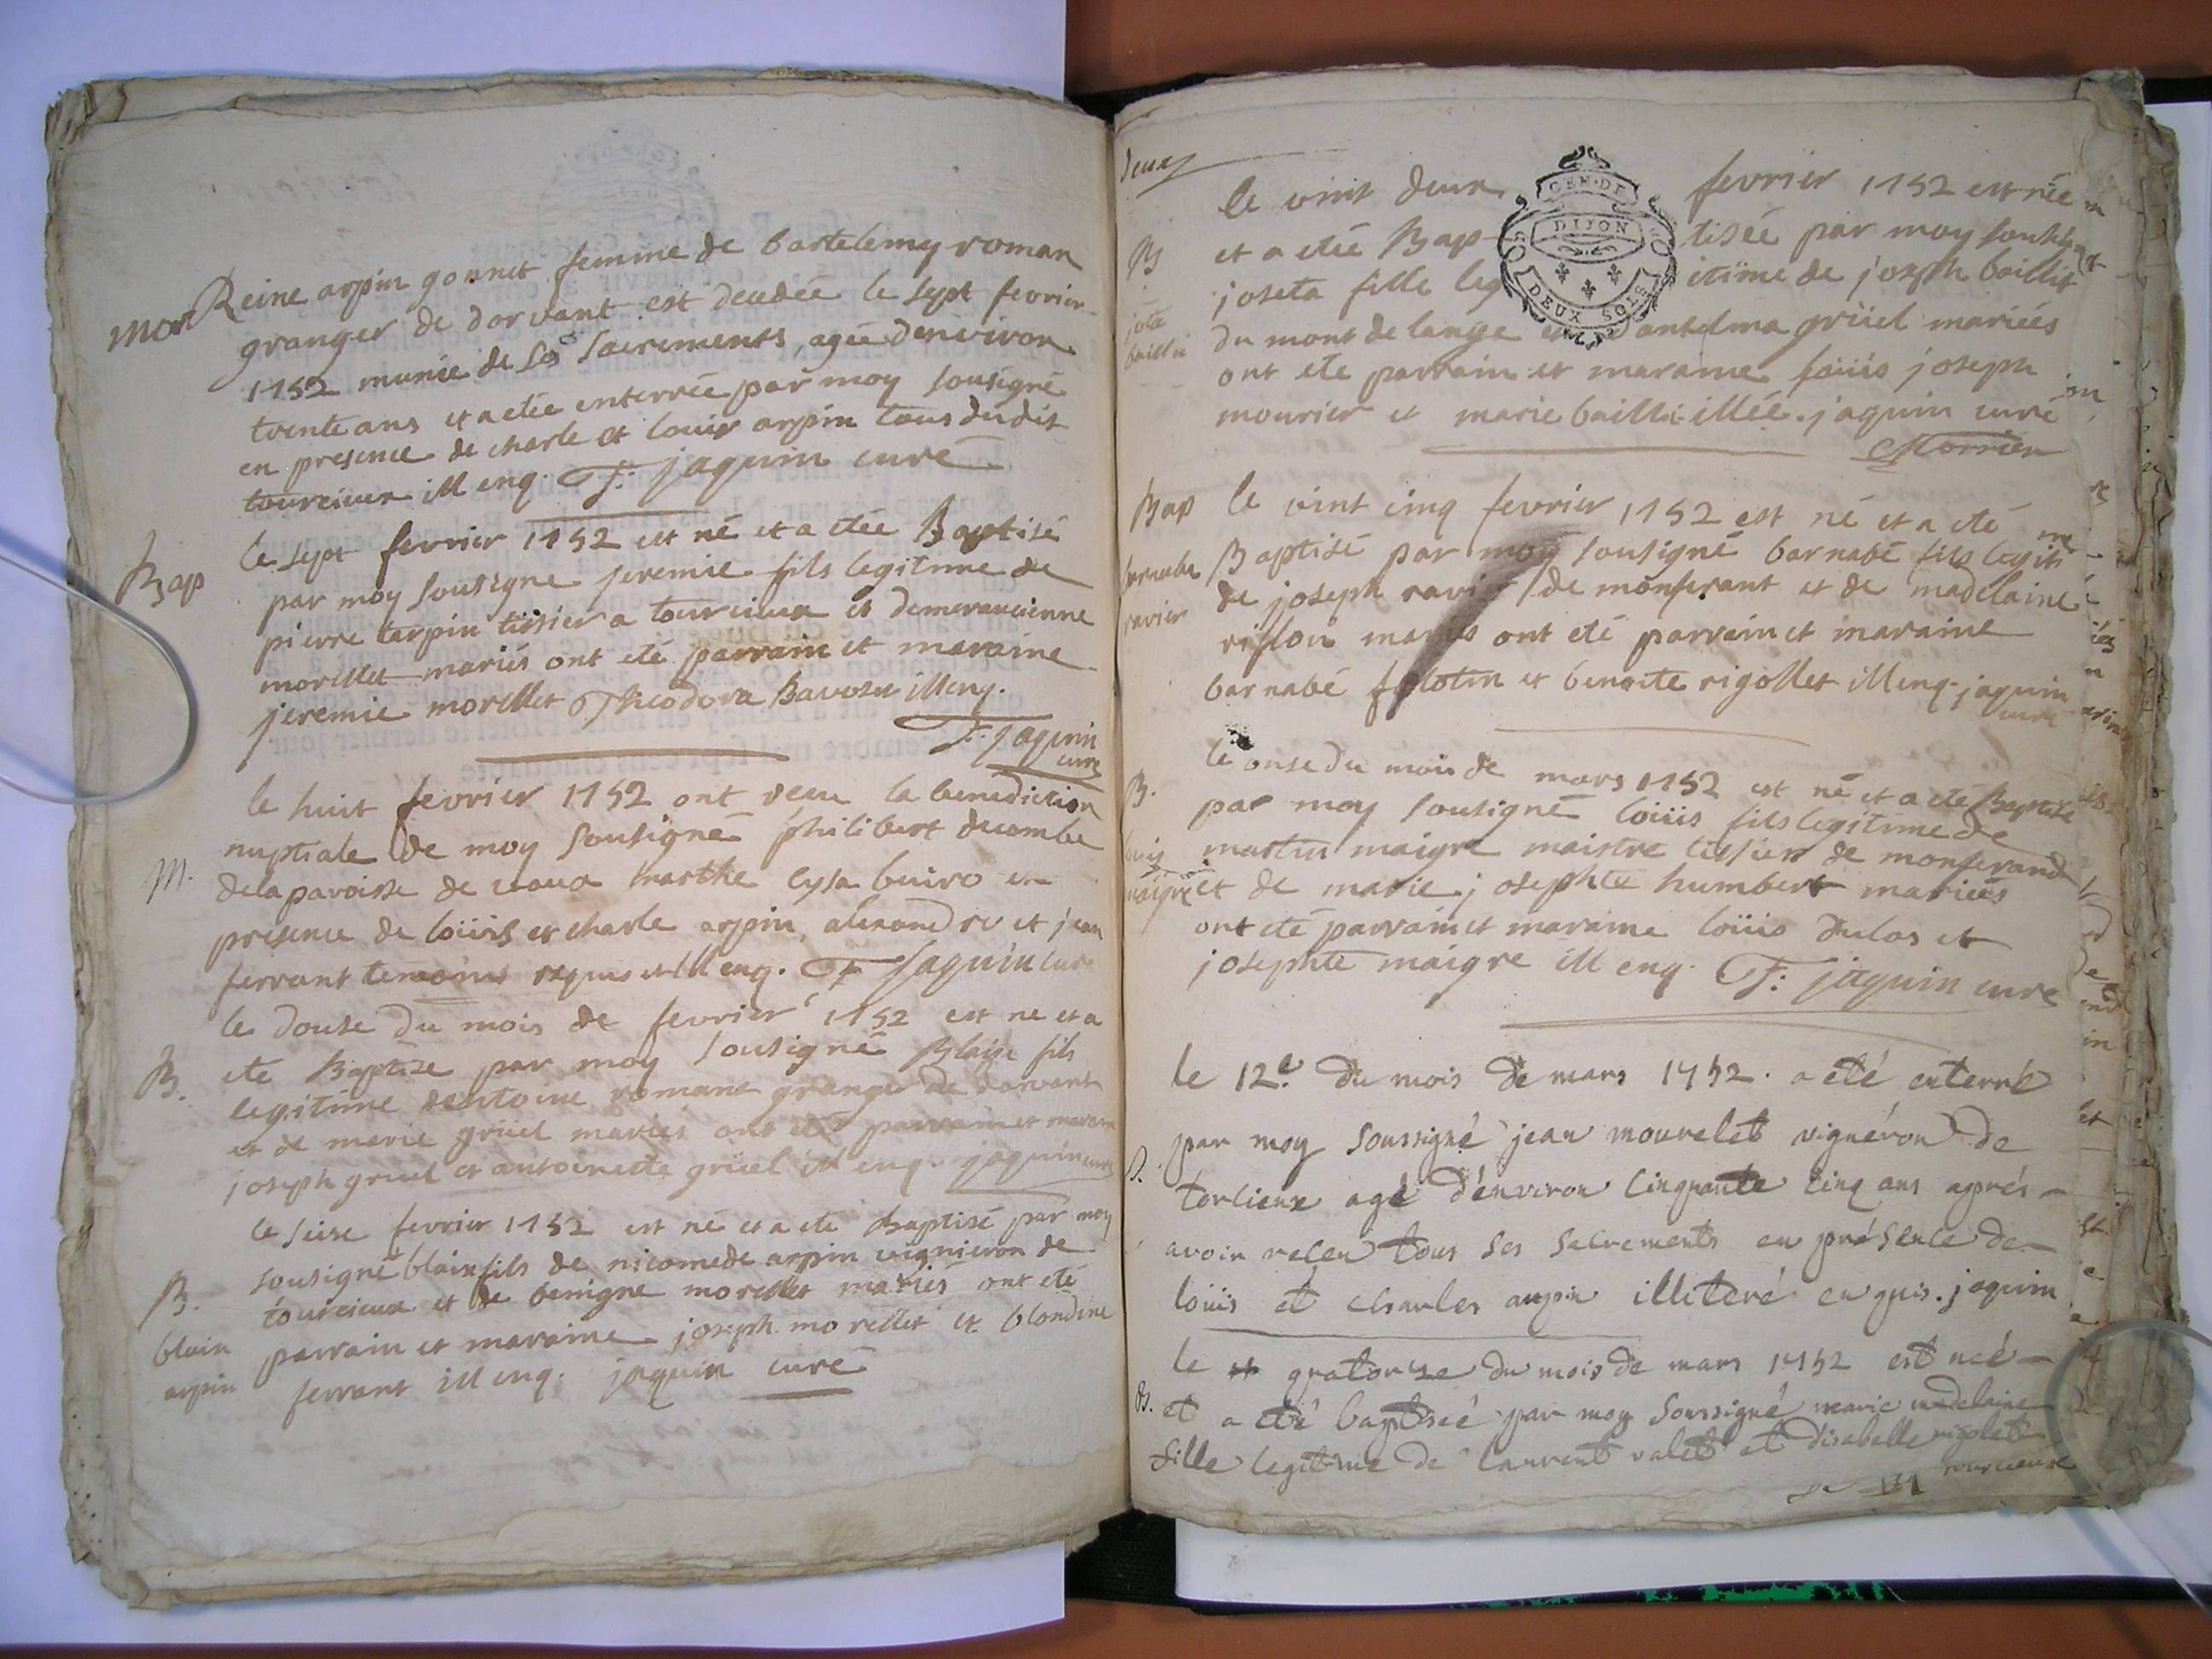 mor Reine arpin gonnet femme de bartelemy roman
granger de dorvant est decedée le sept fevrier
1752 munie de ses sacrements, agée denviron
trente ans et a etée enterrée par moy sousigné
en presence de charle et louis arpin tous dudit
tourcieux ill enq. F: jaquin curé
Bap le sept fevrier 1752 est né et a etée Baptisé
par moy sousigne jeremie fils legitime de
pierre tarpin tissier a tourcieux et demeraucienne
morellet mariés ont eté parrain et maraine
jeremie morellet Theodora Bavoset ill enq.
F. jaquin
curé
le huit fevrier 1752 ont receu la benediction
nuptiale de moy sousigné philibert decombe
M. dela paroisse de vaux marthe lysa buiro en
presence de loüis et charle arpin, alexandre et jean
ferrant temoins requis et ill enq. F jaquin curé
le douse du mois de fevrier 1752 est ne et a
B. ete Baptize par moy sousigné Blaise fils
legitime dentoine romane granger de dorvant
et de marie grüel mariés ont eté parrain et maraine
joseph gruel et antoinette grüel ill enq. jaquin curé
le seise fevrier 1752 est né et a eté Baptisé par moy
sousigné blain fils de nicomede arpin vignieron de
B. tourcieux et de benigne morellet mariés ont eté
blain parrain et maraine joseph morellet et blondine
arpin ferrant ill enq. jaquin curé
deux
le vint deux fevrier 1752 est née
B et a etée Bap tisée par moy sousigné
joseta fille leg itïme de joseph baillit
joseta du mont de lange et dantelma grüel mariées
baillit ont ete parrain et maraine loüis joseph
mourier et marie baillit illée. jaquin curé
Morrier
Bap le vint cinq fevrier 1752 est né et a eté
barnabe Baptisé par moy sousigné barnabé fils legiti me
ravier de joseph ravier de monferant et de madelaine
riflon mariés ont eté parrain et maraine
barnabé folotin et benoite rigollet ill enq. jaquin
curé
le onse du mois de mars 1752 est né et a eté Baptisé
B. par moy sousigné loüis fils legitime de
louis martin maigre maistre tissier de monferand
maigre et de marie josephte humbert mariées
ont eté parrain et maraine loüis dulas et
josephte maigre ill enq. F: jaquin curé
le 12e. du mois de mars 1752. a eté enterré
par moy soussigné jean mourelet vignéron de
S. torcieux agé d'environ cinquante cinq ans aprés
avoir receu tous ses sacrements en présence de
loüis et charles arpin illiteré enquis. jaquin
le quatorze du mois de mars 1752 est née
B. et a eté baptiseé par moy soussigné marie madelaine
fille legitime de laurent valet et disabelle rigolet
tourcieux